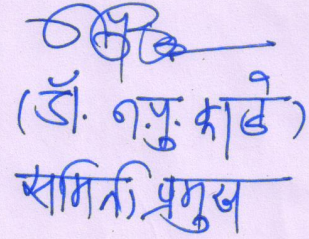 (डॉ. न.पु. काळे)
समिती प्रमुख